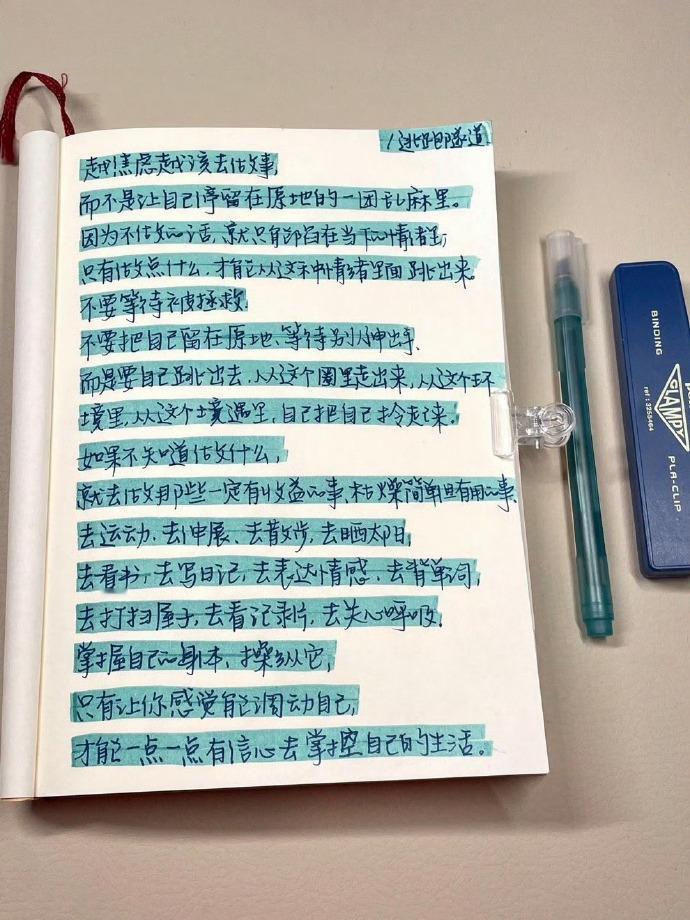 越焦虑越该去做事,
而不是让自己停留在原地的一团乱麻里。
因为不做的话,就只有陷在当下的情绪里,
只有做点什么,才能从这种情绪里面跳出来。
不要等待被拯救.
不要把自己留在原地、等待别人伸出手.
而是要自己跳出去,从这个圈里走出来,从这个环
境里,从这个境遇里,自己把自己拎走了来。
如果不知道做什么,
就去做那些一定有收益的事,枯燥简单但有用的事.
去运动、去伸展、去散步,去晒太阳,
去看书,去写日记,去表达情感、去背单词,
去打扫屋子,去看记录片,去关心呼吸.
掌握自己的身体,操纵它,
只有让你感觉能调动自己,
才能一点一点有信心去掌控自己的生活。
BINDING
GLAMPY
ref: 3255464
PLA-CLIP